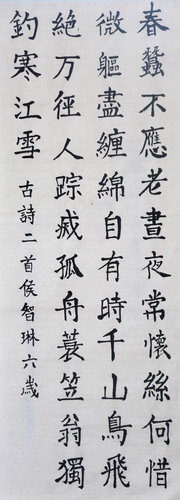 春蠶不應老晝夜常懷絲何惜
微軀盡纏綿自有時千山鳥飛
絶万徑人踪滅孤舟蓑笠翁獨
釣寒江雪
古詩二首侯智琳六歲